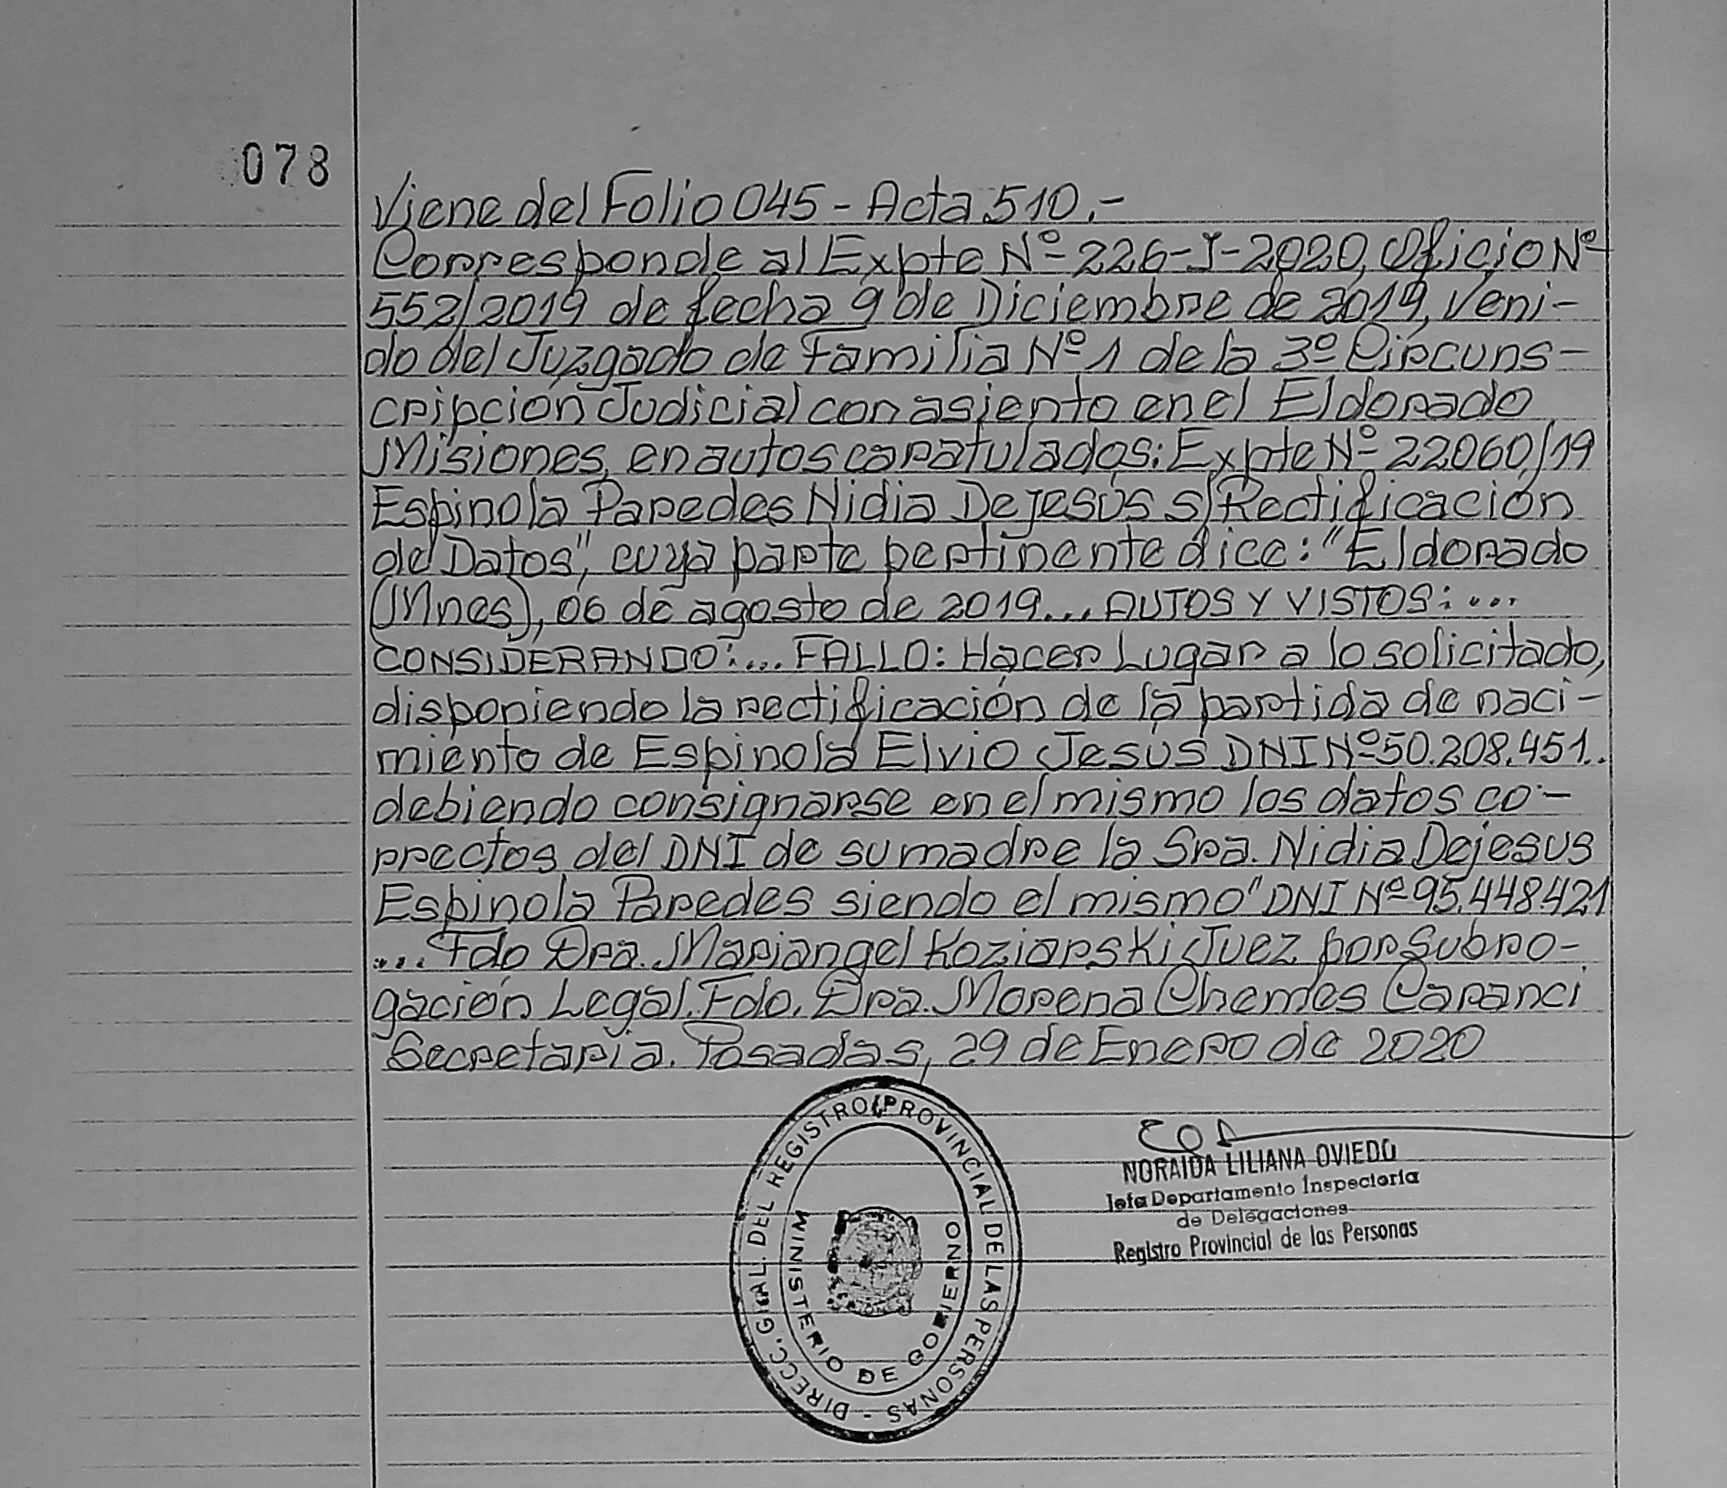 078
Viene del Folio 045 - Acta 510.-
Corresponde al Expte Nº 226-J-2020, Oficio Nº
552/2019 de fecha 9 de Diciembre de 2019, Veni-
do del Juzgado de Familia Nº 1 de la 3º Circuns-
cripción Judicial con asiento en el Eldorado
Misiones, en autos caratulados: Expte Nº 22060/19
Espinola Paredes Nidia Dejesús s/Rectificación
de Datos", cuya parte pertinente dice: "Eldorado
(Mnes), 06 de agosto de 2019... AUTOS Y VISTOS:...
CONSIDERANDO:... FALLO: Hacer Lugar a lo solicitado,
disponiendo la rectificación de la partida de naci-
miento de Espinola Elvio Jesús DNI Nº 50.208.451..
debiendo consignarse en el mismo los datos co-
rrectos del DNI de su madre la Sra. Nidia Dejesus
Espinola Paredes siendo el mismo "DNI Nº 95.448.421
... Fdo Dra. Mariangel Koziarski Juez por Subro-
gación Legal. Fdo. Dra. Morena Chemes Caranci
Secretaria. Posadas, 29 de Enero de 2020
DIRECC. GRAL. DEL REGISTRO PROVINCIAL DE LAS PERSONAS -
MINISTERIO DE GOBIERNO
NORAIDA LILIANA OVIEDO
Jefa Departamento Inspectoria
de Delegaciones
Registro Provincial de las Personas